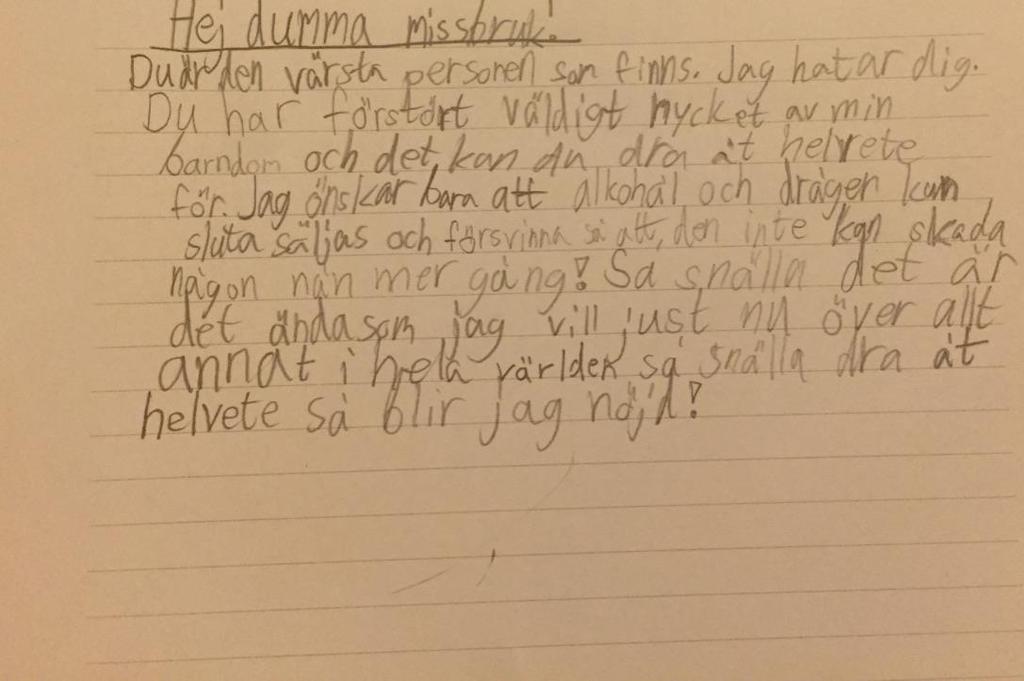 Hej dumma missbruk!
Du är den värsta personen som finns. Jag hatar dig.
Du har förstört väldigt mycket av min
barndom och det kan du dra åt helvete
för. Jag önskar bara att alkohål och dråger kan
sluta säljas och försvinna så att den inte kan skada
någon nån mer gång! Så snälla det är
det ända som jag vill just nu över allt
annat i hela världen så snälla dra åt
helvete så blir jag nöjd!